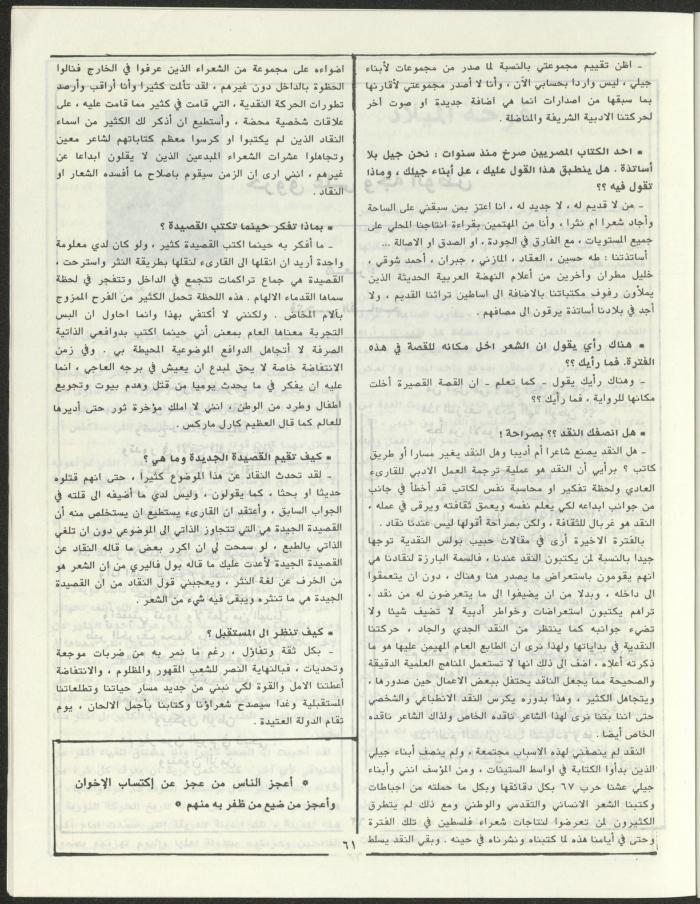 ـ اظن تقييم مجموعتي بالنسبة لما صدر من مجموعات لأبناء
جيلي ، ليس واردا بحسابي الآن ، وأنا لا أصدر مجموعتي لأقارنها
بما سبقها من اصدارات انما هي اضافة جديدة او صوت آخر
لحركتنا الادبية الشريفة والمناضلة .
* احد الكتاب المصريين صرخ منذ سنوات : نحن جيل بلا
أساتذة . هل ينطبق هذا القول عليك ، عل أبناء جيلك ، وماذا
تقول فيه ؟؟
ـ من لا قديم له ، لا جديد له ، انا اعتز بمن سبقني على الساحة
وأجاد شعرا ام نثرا ، وأنا من المهتمين بقراءة انتاجنا المحلي على
جميع المستويات ، مع الفارق في الجودة ، او الصدق او الاصالة ...
أساتذتنا : طه حسين ، العقاد ، المازني ، جبران ، أحمد شوقي ،
خليل مطران وآخرين من أعلام النهضة العربية الحديثة الذين
يملأون رفوف مكتباتنا بالاضافة الى اساطين تراثنا القديم ، ولا
أجد في بلادنا أساتذة يرقون الى مصافهم .
* هناك رأي يقول ان الشعر اخل مكانه للقصة في هذه
الفترة. فما رأيك ؟؟
ـ وهناك رأيك يقول ـ كما تعلم ـ ان القصة القصيرة أخلت
مكانها للرواية ، فما رأيك ؟؟
* هل انصفك النقد ؟؟ بصراحة !
ـ هل النقد يصنع شاعرا أم أديبا وهل النقد يغير مسارا أو طريق
كاتب ؟ برأيي أن النقد هو عملية ترجمة العمل الادبي للقارىء
العادي ولحظة تفكير او محاسبة نفس لكاتب قد أخطأ في جانب
من جوانب ابداعه لكي يعلم نفسه ويعمق ثقافته ويرقى في عمله ،
النقد هو غربال للثقافة ، ولكن بصراحة أقولها ليس عندنا نقاد .
بالفترة الاخيرة أرى في مقالات حبيب بولس النقدية توجها
جيدا بالنسبة لمن يكتبون النقد عندنا ، فالسمة البارزة لنقادنا هي
انهم يقومون باستعراض ما يصدر هنا وهناك ، دون ان يتعمقوا
الى داخله ، وبدلا من ان يضيفوا الى ما يتعرضون له من نقد ،
تراهم يكتبون استعراضات وخواطر أدبية لا تضيف شيئا ولا
تضيء جوانبه كما ينتظر من النقد الجدي والجاد ، حركتنا
النقدية في بداياتها ولهذا نرى ان الطابع العام المهيمن عليها هو ما
ذكرته أعلاه ، اضف الى ذلك انها لا تستعمل المناهج العلمية الدقيقة
والصحيحة مما يجعل الناقد يحتفل ببعض الاعمال حين صدورها ،
ويتجاهل الكثير ، وهذا بدوره يكرس النقد الانطباعي والشخصي
حتى اننا بتنا نرى لهذا الشاعر ناقده الخاص ولذاك الشاعر ناقده
الخاص أيضا .
النقد لم ينصفني لهذه الاسباب مجتمعة ، ولم ينصف أبناء جيلي
الذين بدأوا الكتابة في اواسط الستينات ، ومن المؤسف انني وأبناء
جيلي عشنا حرب ٦٧ بكل دقائقها وبكل ما حملته من احباطات
وكتبنا الشعر الانساني والتقدمي والوطني ومع ذلك لم يتطرق
الكثيرون لمن تعرضوا لنتاجات شعراء فلسطين في تلك الفترة
وحتى في أيامنا هذه لما كتبناه ونشرناه في حينه . وبقي النقد يسلط
اضواءه على مجموعة من الشعراء الذين عرفوا في الخارج فنالوا
الحظوة بالداخل دون غيرهم ، لقد تألمت كثيرا وأنا أراقب وأرصد
تطورات الحركة النقدية ، التي قامت في كثير مما قامت عليه ، على
علاقات شخصية محضة ، وأستطيع ان أذكر لك الكثير من اسماء
النقاد الذين لم يكتبوا او كرسوا معظم كتاباتهم لشاعر معين
وتجاهلوا عشرات الشعراء المبدعين الذين لا يقلون ابداعا عن
غيرهم ، انني ارى ان الزمن سيقوم باصلاح ما أفسده الشعار او
النقاد .
* بماذا تفكر حينما تكتب القصيدة ؟
ـ ما أفكر به حينما اكتب القصيدة كثير ، ولو كان لدي معلومة
واحدة أريد ان انقلها الى القارىء لنقلها بطريقة النثر واسترحت ،
القصيدة هي جماع تراكمات تتجمع في الداخل وتتفجر في لحظة
سماها القدماء الالهام . هذه اللحظة تحمل الكثير من الفرح الممزوج
بآلام المخاض . ولكنني لا أكتفي بهذا وانما احاول ان البس
التجربة معناها العام بمعنى أني حينما اكتب بدوافعي الذاتية
الصرفة لا أتجاهل الدوافع الموضوعية المحيطة بي . وفي زمن
الانتفاضة خاصة لا يحق لمبدع ان يعيش في برجه العاجي ، انما
عليه ان يفكر في ما يحدث يوميا من قتل وهدم بيوت وتجويع
أطفال وطرد من الوطن ، انني لا املك مؤخرة ثور حتى أديرها
للعالم كما قال العظيم كارل ماركس .
* كيف تقيم القصيدة الجديدة وما هي ؟
ـ لقد تحدث النقاد عن هذا الموضوع كثيرا ، حتى انهم قتلوه
حديثا او بحثا ، كما يقولون ، وليس لدي ما أضيفه الى قلته في
الجواب السابق ، وأعتقد ان القارىء يستطيع ان يستخلص منه أن
القصيدة الجيدة هي التي تتجاوز الذاتي الى الموضوعي دون ان تلغي
الذاتي بالطبع ، لو سمحت لي ان اكرر بعض ما قاله النقاد عن
القصيدة الجيدة لأعدت عليك ما قاله بول فاليري من ان الشعر هو
من الخرف عن لغة النثر ، ويعجبني قول النقاد من ان القصيدة
الجيدة هي ما تنثره ويبقى فيه شيء من الشعر .
* كيف تنظر الى المستقبل ؟
ـ بكل ثقة وتفاؤل ، رغم ما نمر به من ضربات موجعة
وتحديات ، فبالنهاية النصر للشعب القهور والمظلوم ، والانتفاضة
أعطتنا الامل والقوة لكي نبني من جديد مسار حياتنا وتطلعاتنا
المستقبلية وغدا سيصدح شعراؤنا وكتابنا بأجمل الالحان ، يوم
تقام الدولة العتيدة .
* أعجز الناس من عجز عن إكتساب الإخوان
وأعجز من ضيع من ظفر به منهم *
٦١